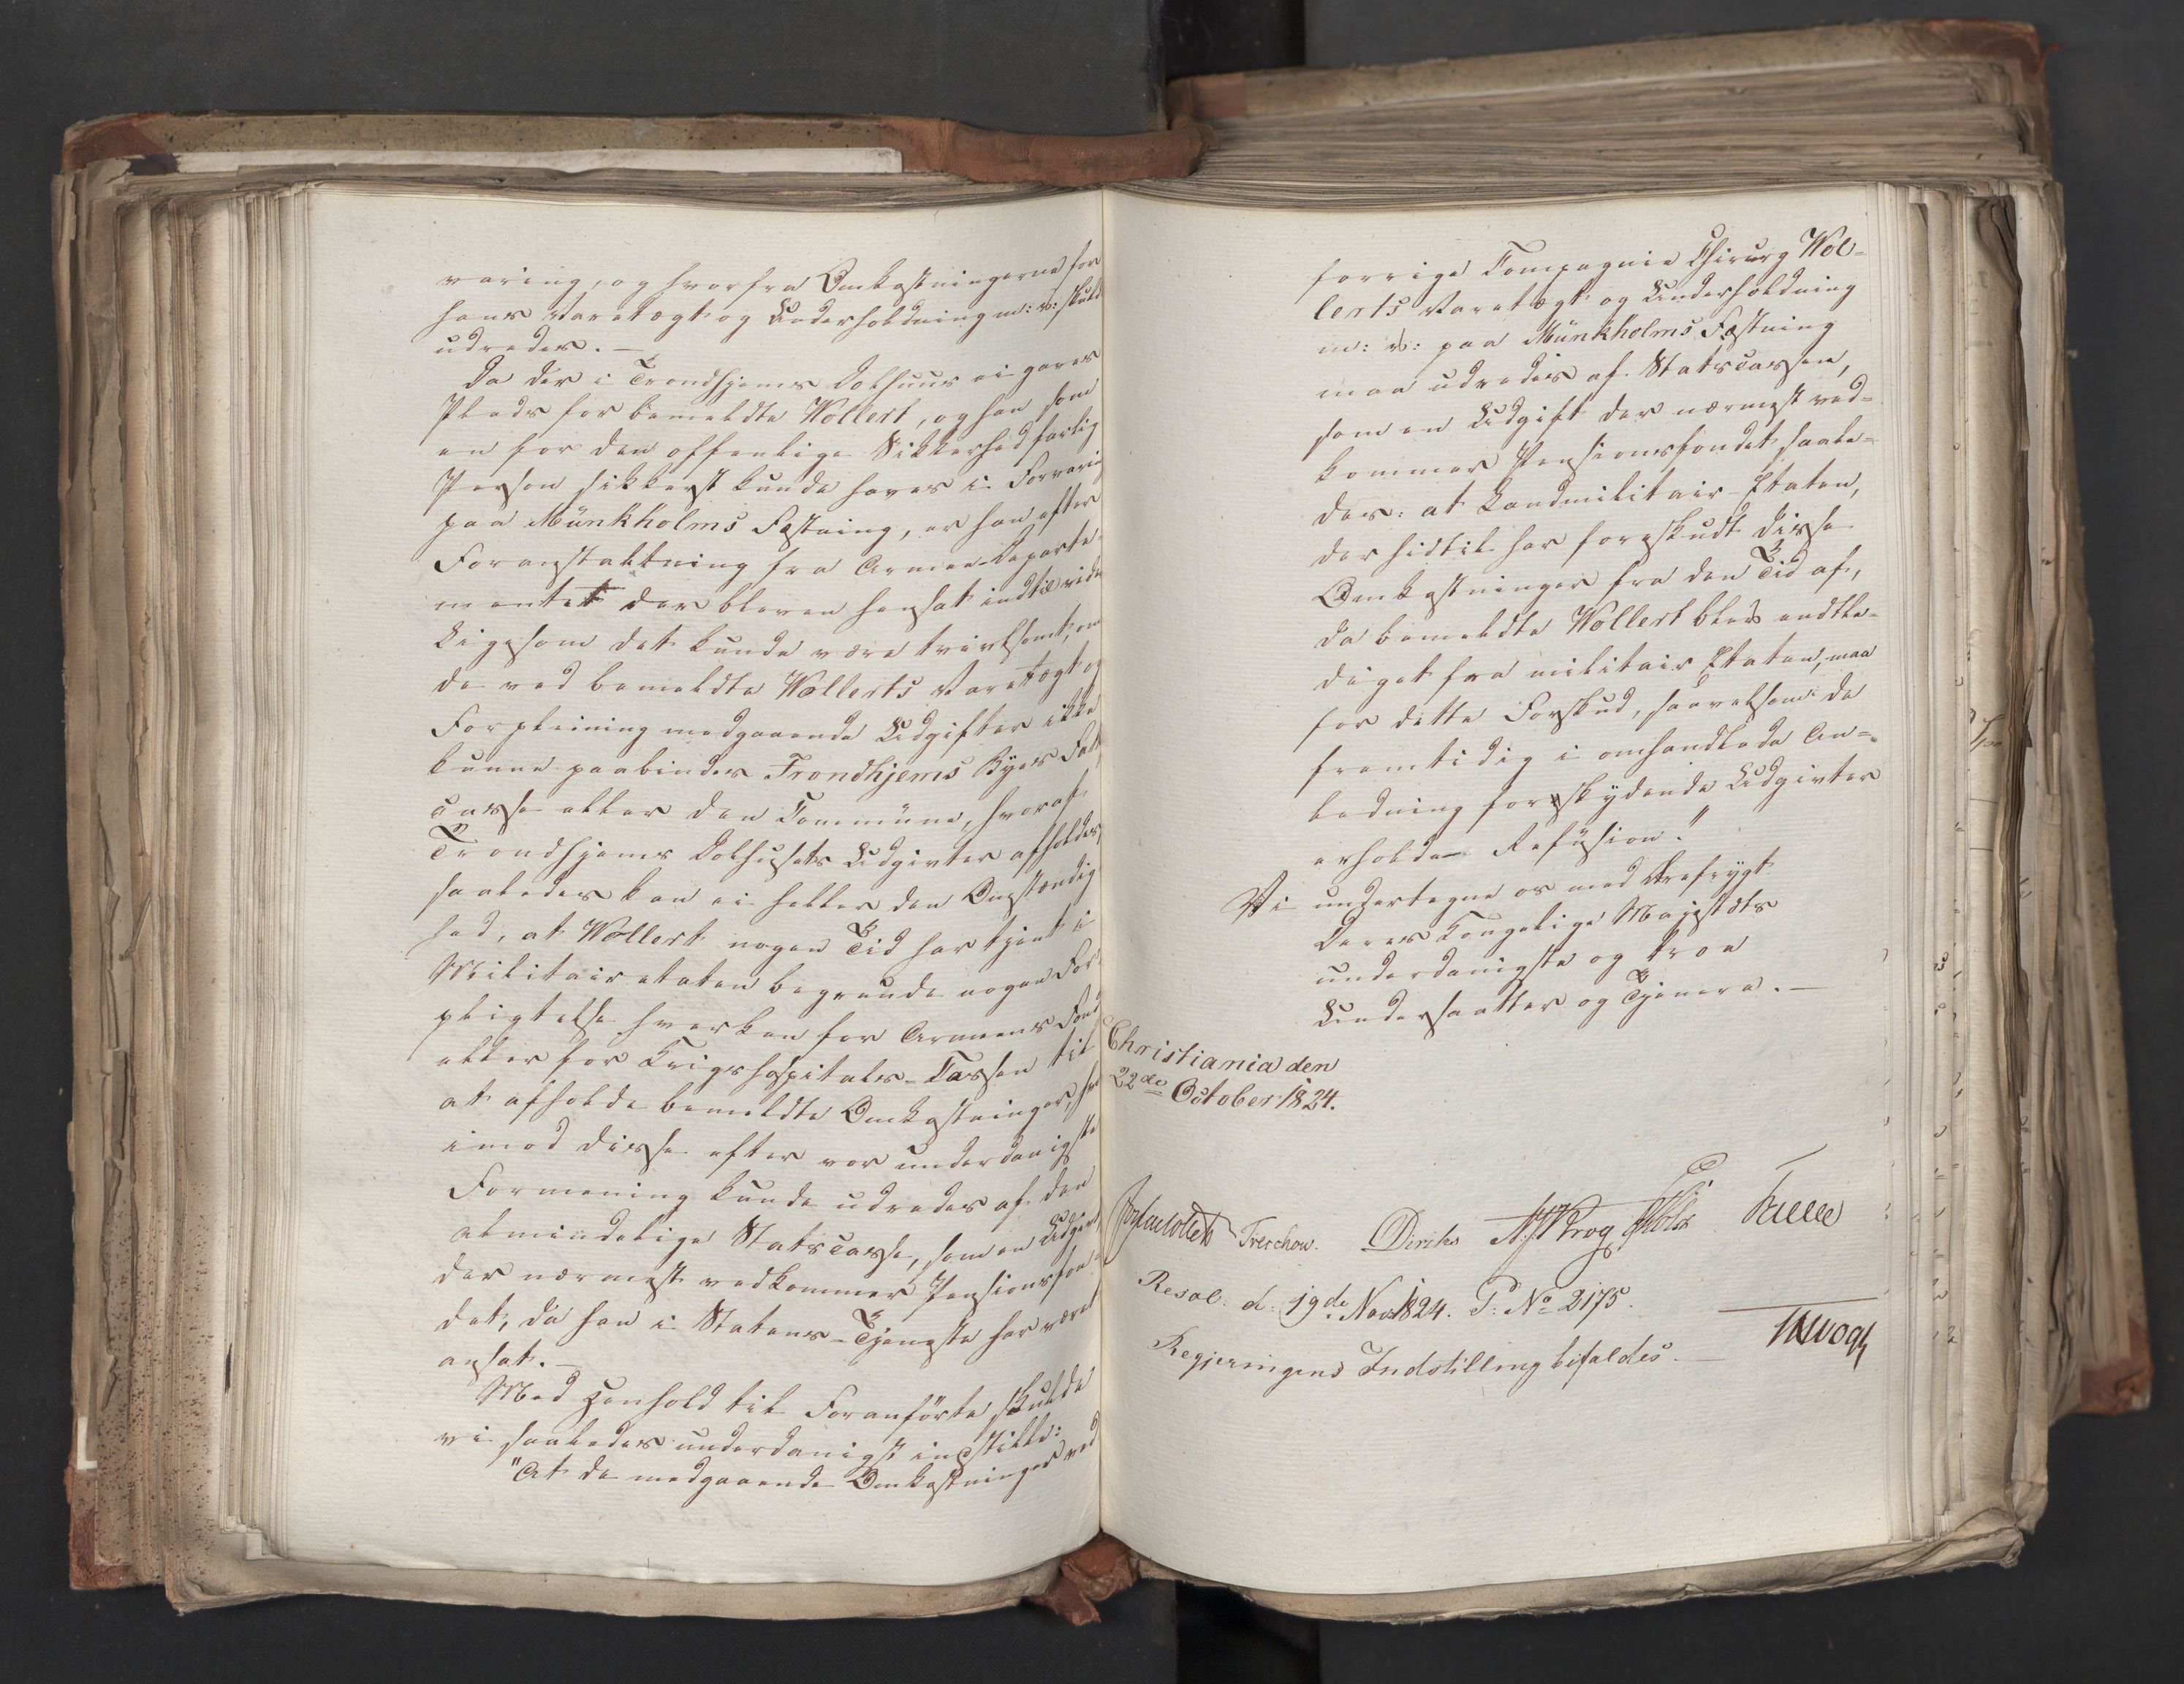 varing, og hvorfra Omkostningerne for
hans Varetægt og Underholdning m: v: skulde
udredes. —
Da der i Trondhjems Dolhuus ei gaves
Plads for bemeldte Wollert, og han som
en for den offentlige Sikkerhed farlig
Person sikkerst kunde haves i Forvaring
paa Münkholms Fæstning, er han efter
Foranstaltning fra Armee-Departe-
mentet der bleven hensat indtil videre
Ligesom det kunde være tvivlsomt, om
de ved bemeldte Wollerts Varetægt og
Forpleining medgaaende Udgifter ikke
kunne paabindes Trondhjems Byes Fattig
casse eller den Commüne, hvoraf
Trondhjems Dolhusets Udgivter afholdes,
saaledes kan ei heller den Omstændig
hed, at Wollert nogen Tid har tjent i
Militairetaten begrunde nogen For-
pligtelse hverken for Armeens Fond
eller for Krigshospitals-Cassen til
at afholde bemeldte Omkostninger, hvor
imod disse efter vor underdanigste
Formening kunde udredes af den
almindelige Statscasse, som en Udgivt,
der nærmest vedkommer Pensionsfon-
det, da han i Statens-Tjeneste har været
ansat. —
Med Henhold til Foranförte skulde
vi saaledes underdanigst indstille:
"At de medgaaende Omkostninger ved
forrige Compagnie Chirurg Wol-
lerts Varetægt og Underholdning
m: v: paa Münkholms Fæstning
maa udredes af Statscassen,
som en Udgift der nærmest ved-
kommer Pensionsfondet, saale-
des: at Landmilitair-Etaten,
der hidtil har forskudt disse
Omkostninger fra den Tid af,
da bemeldte Wollert blev entle-
diget fra militair Etaten, maa
for dette Forskud, saavelsom de
fremtidig i omhandlede An-
ledning forskydende Udgivter
erholde Refusion."
Vi undertegne os med Ærefrygt
Deres Kongelige Majestæts
underdanigste og troe
Undersaatter og Tjenere. —
Christiania den
22de October 1824.
Treschow. Diriks Krog Holst
Resol: d: 19de Nov. 1824. P: No 2175.
Regjeringens Indstilling bifaldes. —